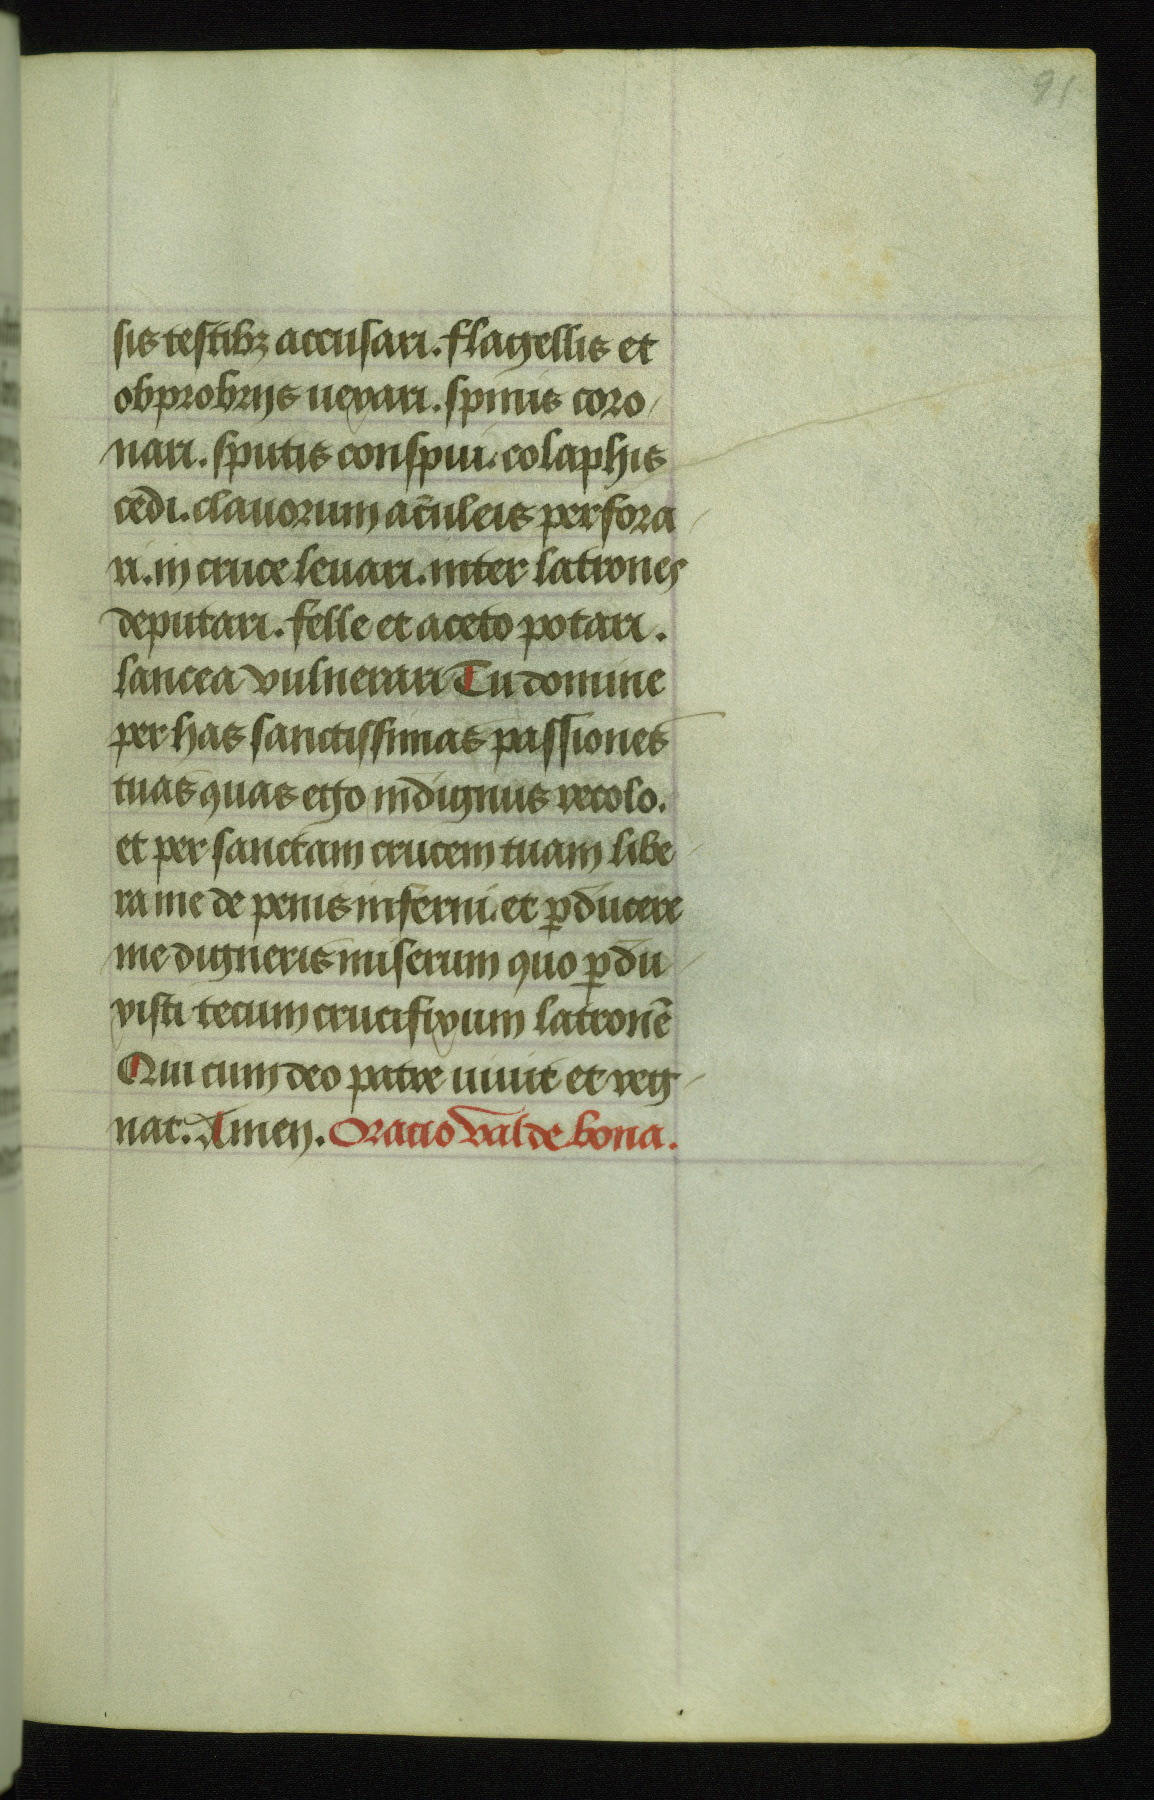 91
sis testibꝫ accusari. flagellis et
obprobrijs uexari. spinis coro
nari. sputis conspui. colaphis
cedi. clauorum ac̄uleis perfora
ri. in cruce leuari. inter latrones
deputari. felle et aceto potari.
lancea vulnerari Tu domine
per has sanctissimas passiones
tuas quas ego indignus recolo.
et per sanctam crucem tuam libe
ra me de penis inferni. et ꝑducere
me digneris miserum quo ꝑdu
xisti tecum crucifixum latronē
Qui cum deo patre uiuit et reg
nat. Amen. Oratio valde bona.